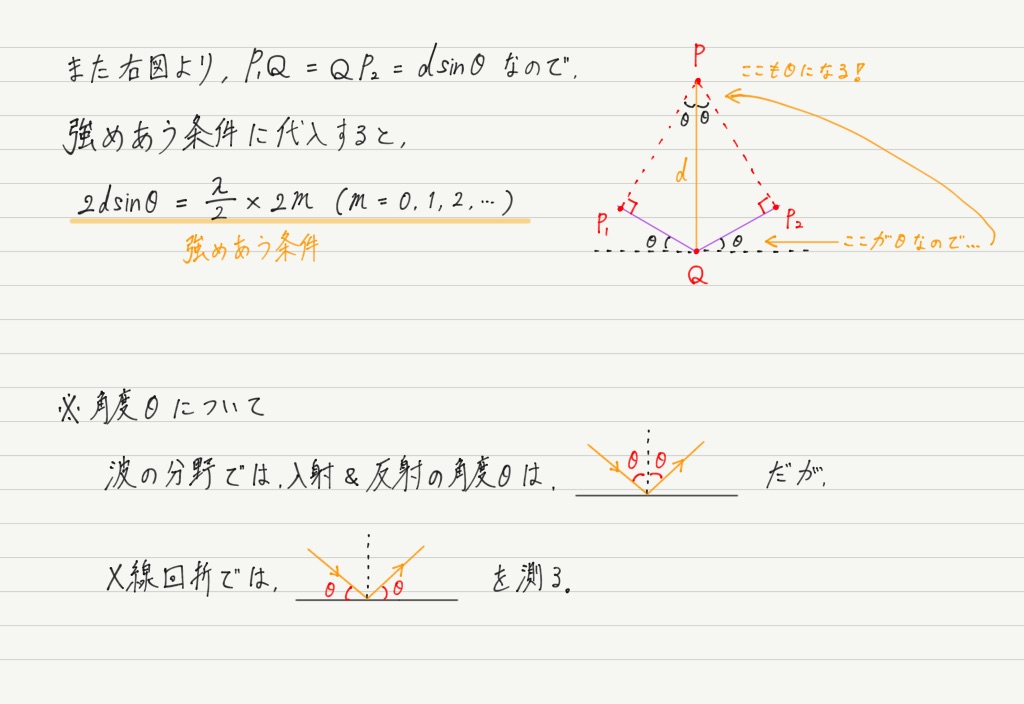 また右図より, P₁Q = QP₂ = dsinθ なので,
強めあう条件に代入すると,
2dsinθ = λ/2 × 2m (m = 0, 1, 2, …)
強めあう条件
P
ここもθになる!
θ θ
d
P₁
P₂
θ θ
ここがθなので…
Q
※ 角度θについて
波の分野では, 入射 & 反射の角度θは, θ θ だが,
X線回折では, θ θ を測る.